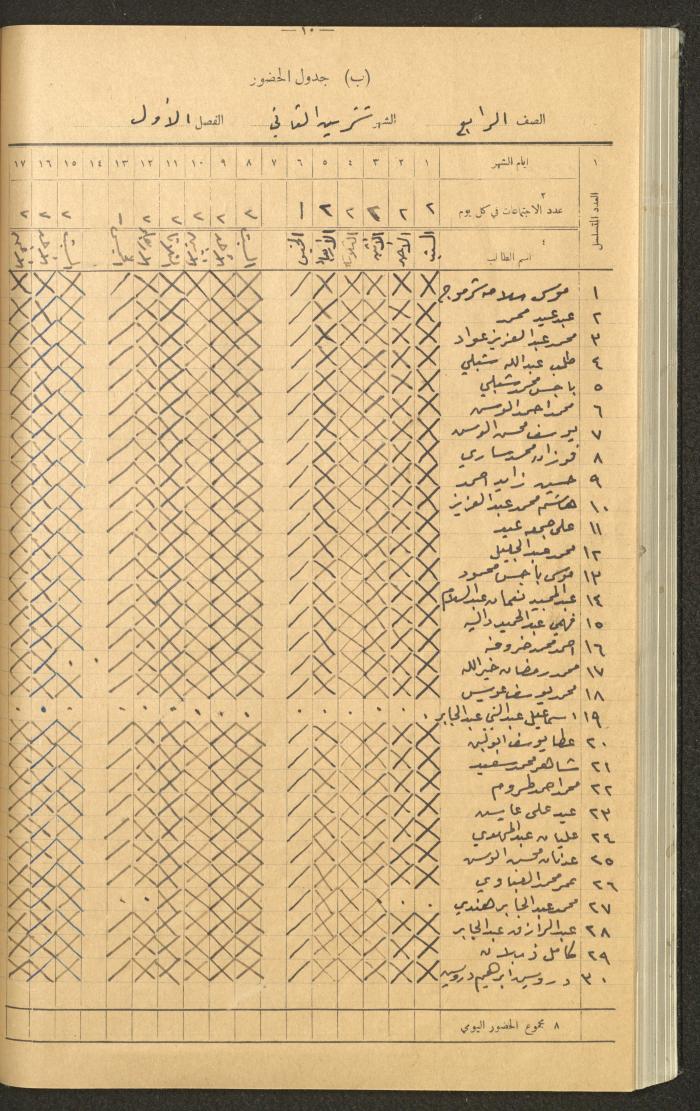 — ١٠ —
(ب) جدول الحضور
الصف الرابع الشهر تشرين الثاني الفصل الأول
١ ايام الشهر ١ ٢ ٣ ٤ ٥ ٦ ٧ ٨ ٩ ١٠ ١١ ١٢ ١٣ ١٤ ١٥ ١٦ ١٧
العدد المتسلسل
٢
عدد الاجتماعات في كل يوم ٢ ٢ ٢ ٢ ٢ ١ ٢ ٢ ٢ ٢ ٢ ١ ٢ ٢ ٢
٤
اسم الطالب السبت الأحد الاثنين الثلاثاء الأربعاء الخميس السبت
١ موسى سلامه
٢ عبد عيد محمد
٣ محمد عبد العزيز عواد
٤ طلب عبدالله شبلي
٥ باجس محمد شبلي
٦ محمد احمد
٧ يوسف محسن
٨ فوزات محمد ساري
٩ حسين زايد احمد
١٠ هاشم محمد عبد العزيز
١١ علي جمعه عيد
١٢ محمد عبد الجليل
١٣ موسى باجس محمود
١٤ عبد المجيد نعمان عبد السلام
١٥ فهمي عبد الحميد
١٦ احمد محمد خروفه
١٧ محمد رمضان خيرالله
١٨ محمد يوسف عويس
١٩ اسماعيل عبد النبي عبد الجابر
٢٠ عطا يوسف ابو لبن
٢١ شاهر محمد سعيد
٢٢ محمد احمد
٢٣ عيد علي
٢٤ عليان عبد المهدي
٢٥ عدنان محسن
٢٦ عمر محمد
٢٧ محمد عبد الجابر هندي
٢٨ عبد الرازق عبد الجابر
٢٩ كامل
٣٠ درويش ابراهيم درويش
٨ مجموع الحضور اليومي